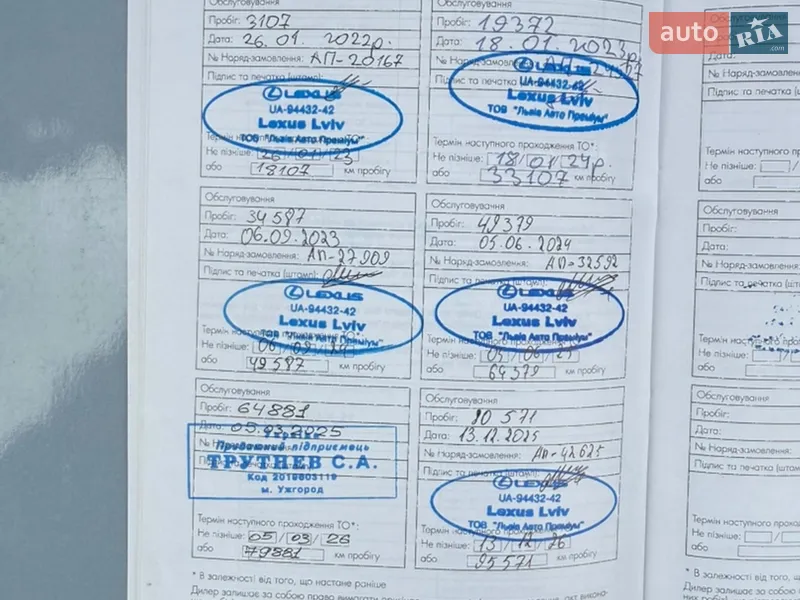 Обслуговування
Пробіг: 3107
Дата: 26.01.2022р.
№ Наряд-замовлення: АП-20167
Підпис та печатка (штамп):
LEXUS
UA-94432-42
Lexus Lviv
ТОВ "Львів Авто Преміум"
Термін наступного проходження ТО*:
Не пізніше: 26/01/23
або 18107 км пробігу
Обслуговування
Пробіг: 19372
Дата: 18.01.2023р.
№ Наряд-замовлення:
Підпис та печатка
LEXUS
UA-94432-42
Lexus Lviv
ТОВ "Львів Авто Преміум"
Термін наступного проходження ТО*:
Не пізніше: 18/01/24р.
або 33107 км пробігу
Обслуговування
Пробіг: 34587
Дата: 06.09.2023
№ Наряд-замовлення: АП-27909
Підпис та печатка (штамп):
LEXUS
UA-94432-42
Lexus Lviv
ТОВ "Львів Авто Преміум"
Термін наступного
Не пізніше: 06/09/24
або 49587 км пробігу
Обслуговування
Пробіг: 49379
Дата: 05.06.2024
№ Наряд-замовлення: АП-32592
Підпис та печатка
LEXUS
UA-94432-42
Lexus Lviv
ТОВ "Львів Авто Преміум"
Термін наступного
Не пізніше: 05/06/25
або 64379 км пробігу
Обслуговування
Пробіг: 64881
Дата: 05.03.2025
Україна
Приватний підприємець
ТРУТНЕВ С.А.
Код 2019805119
м. Ужгород
Термін наступного проходження ТО*:
Не пізніше: 05/03/26
або 79881 км пробігу
Обслуговування
Пробіг: 80571
Дата: 13.12.2025
№ Наряд-замовлення: АП-42625
Підпис та печатка (штамп):
LEXUS
UA-94432-42
Lexus Lviv
ТОВ "Львів Авто Преміум"
Термін наступного
Не пізніше: 13/12/26
або 95571 км пробігу
* В залежності від того, що настане раніше
auto RIA.com
№ Наряд-замовлення
Підпис та печатка
Термін наступного
Не пізніше:
або
Обслуговування
Пробіг:
Дата:
№ Наряд-замовлення
Підпис та печатка (штамп
Не пізніше:
або
Обслуговування
Пробіг:
Дата:
№ Наряд-замовлен
Підпис та печатка
Термін наступного
Не пізніше:
або
* В залежності від